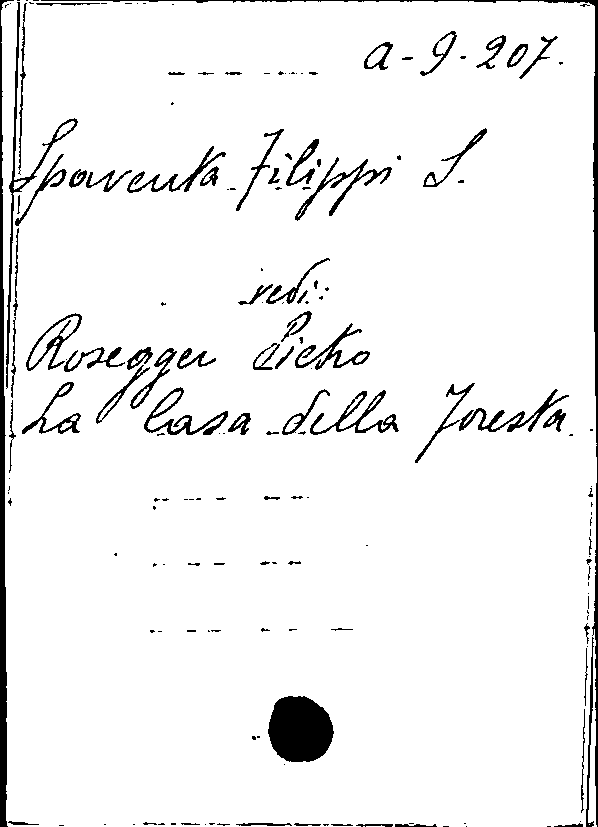 a-9-207.
Spaventa Filippi S.
vedi:
Rosegger Pietro
La Casa della Foresta